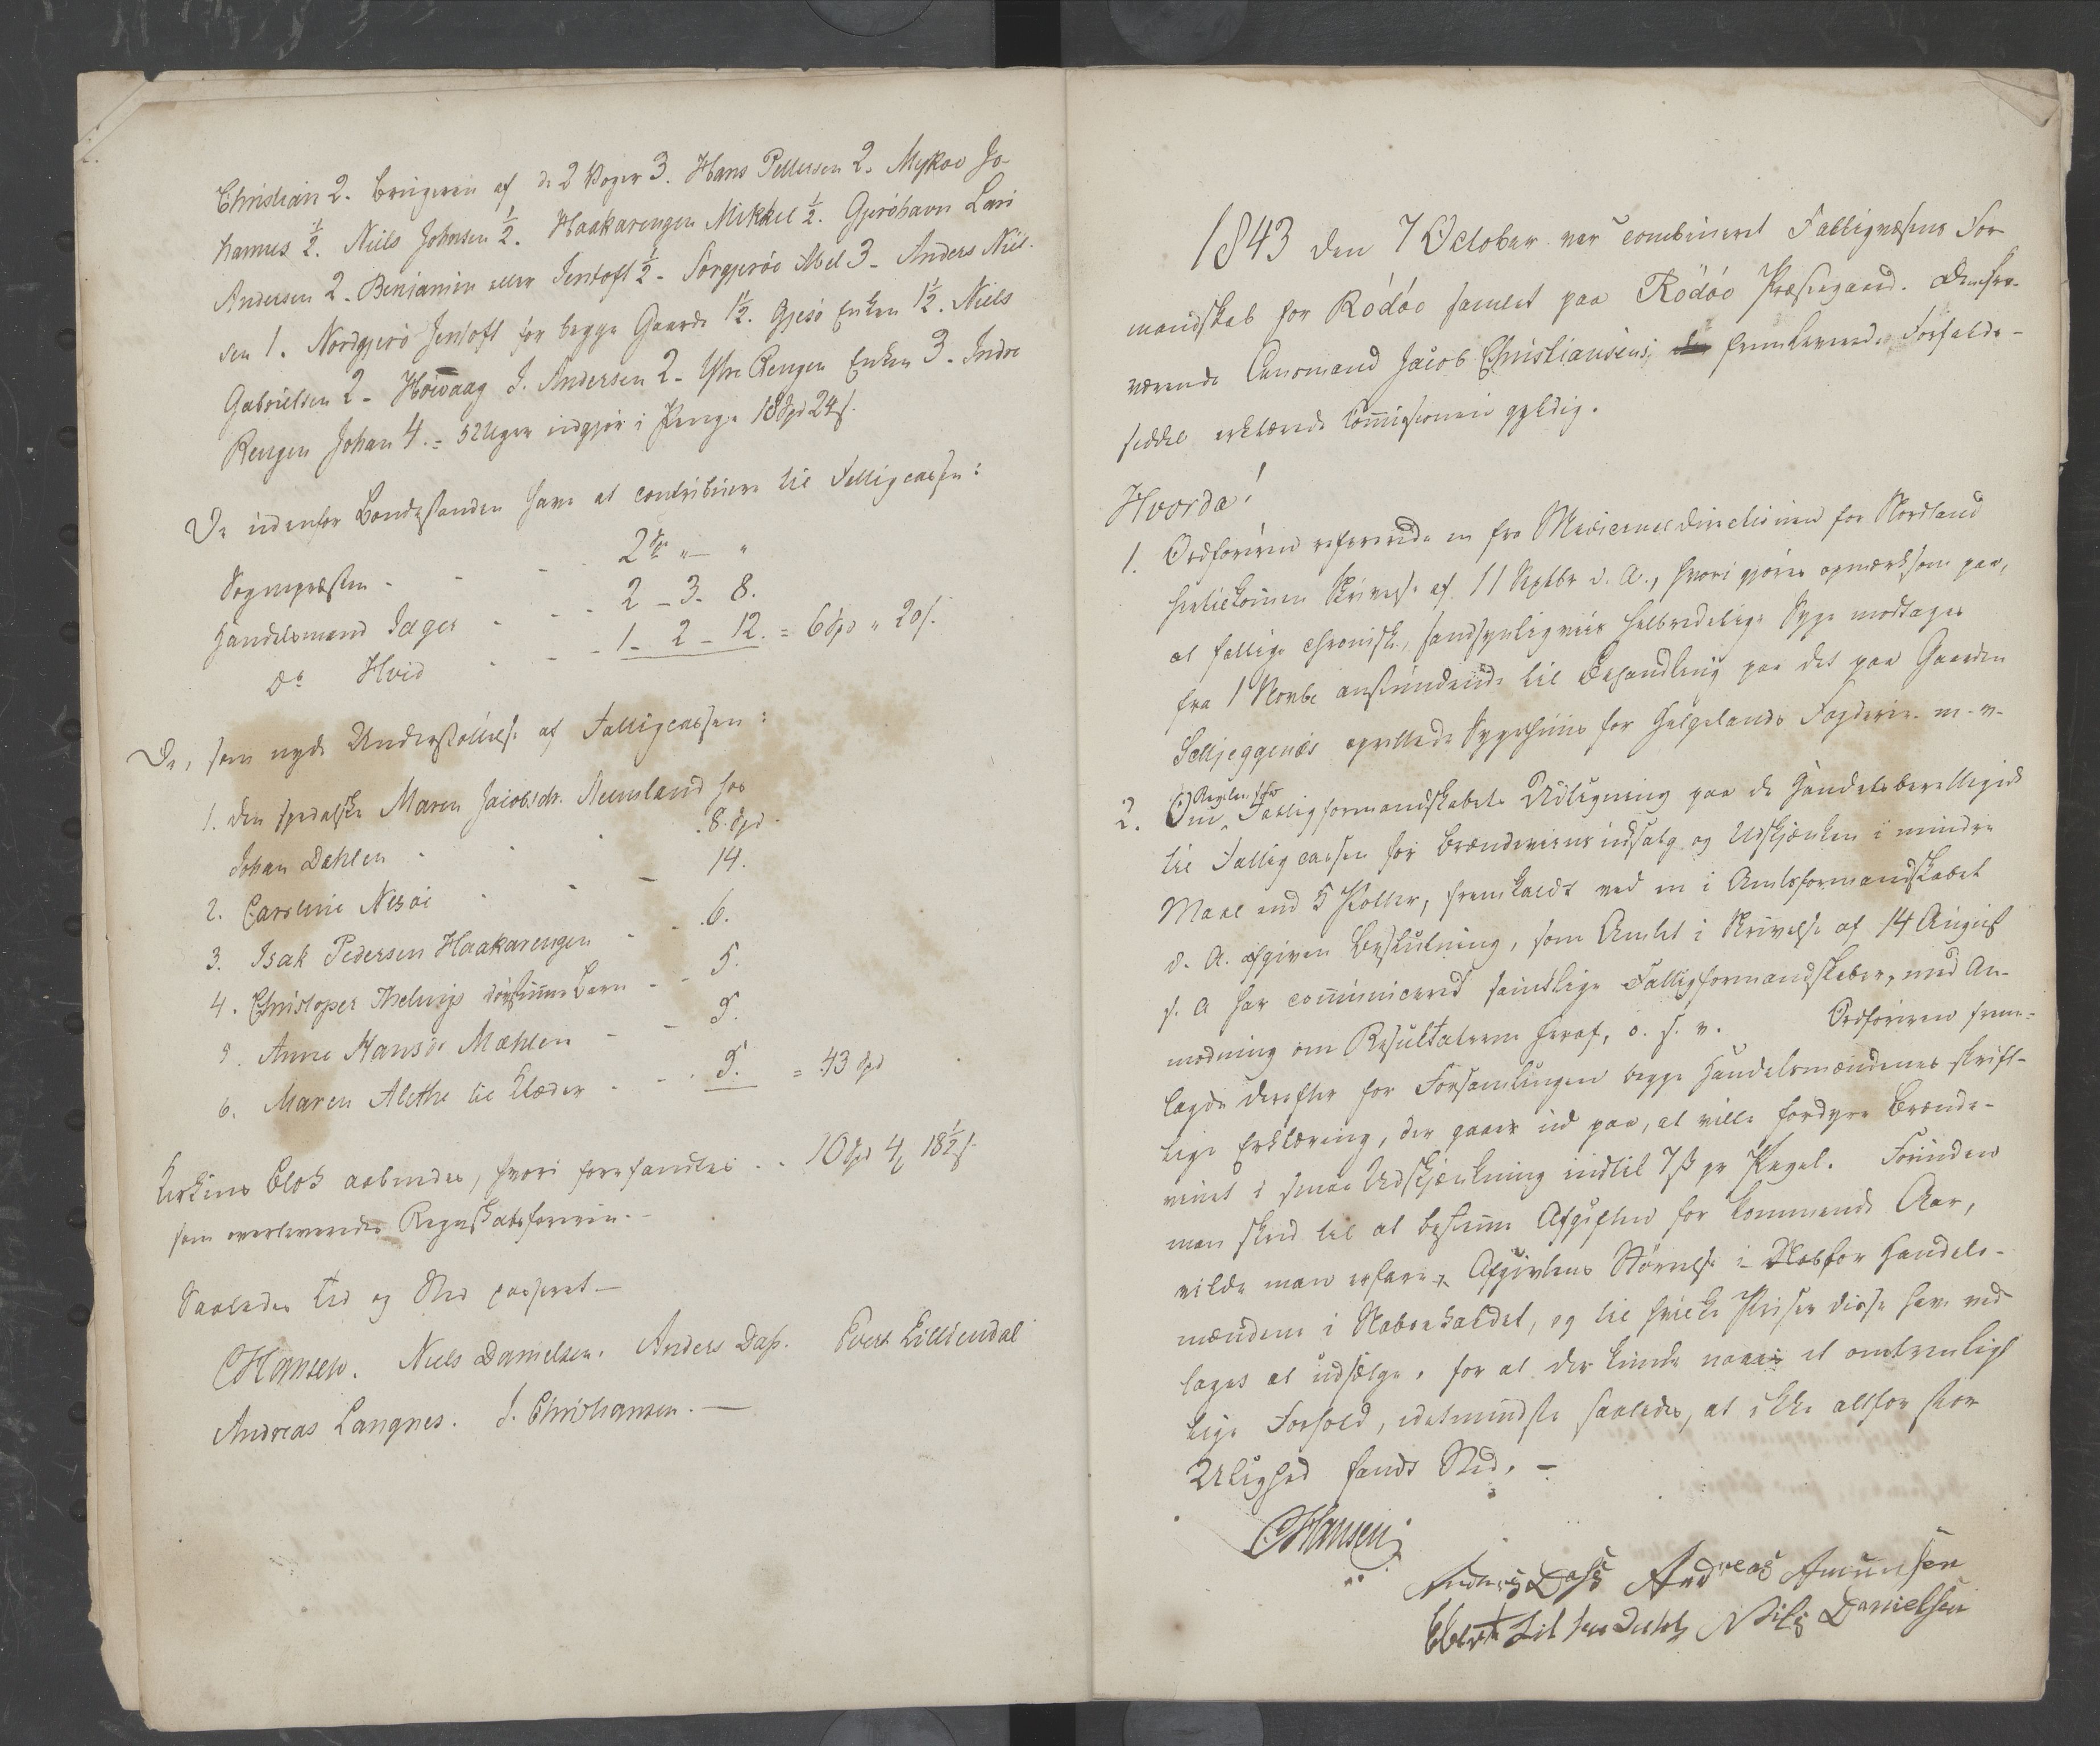 Christian 2. Brugeren af de 2 Voger 3. Hans Pettersen 2. Mykoe Jo-
hannes ½. Niels Johnsen ½. Haakarengen Mikkel ½. Gjeröhavn Lars
Andersen 2 - Benjamin eller Jentoft ½ - Sörgjeröe Abel 3 - Anders Niel-
sen 1. Nordgjerö Jentoft for begge Gaarde 1½. Gjesö Enken 1½. Niels
Gabrielsen 2 - Höivaag J. Andersen 2 - Ytre Rengen Enken 3 - Indre
Rengen Johan 4. = 52 Uger udgjør i Penge 18 Spd 24 s.
De udenfor Bondestanden have at contribuere til Fattigcassen:
Sognepræsten - - - 2 Spd " - "
Handelsmand Jæger - - - 2 - 3 - 8.
Do Hvid - - - 1 - 2 - 12. = 6 Spd " 20 s.
De, som nyde Understøttelse af Fattigcassen:
1. Den spedalske Maren Jacobsdr. Neensland hos
Johan Dahlen - - - 8 Spd.
2. Caroline Nesöe - - - 14.
3. Isak Pedersen Haakarengen - - 6.
4. Christopher Thelwigs Barn - - 5.
5. Anne Hansdr Mæhlen - - 5.
6. Maren Alethe til Klæder - - 5. = 43 Spd
Kirkens Blok aabnedes, hvori forefandtes - - 10 Spd 4 18½ s.
som overleveredes Regnskabsføreren. -
Saaledes Tid og Sted passeret -
CHansen. Niels Danielsen. Anders Dass. Evert Lilliendal
Andreas Langnes. J. Christiansen. -
1843 den 7 October var combineret Fattigvæsens For-
mandskab for Rödöe samlet paa Rödöe Præstegaard. Den fra-
værende Lensmand Jacob Christiansens fremleverede Forfalds-
seddel erklærede Commissionen gyldig.
Hvorda!
1. Ordføreren refererede en fra Medicinaldirectionen for Nordland
hertilkommen Skrivelse af 11 Septbr d. A., hvori gjøres opmærksom paa,
at fattige chroniske, sandsynligviis helbredelige Syge modtages
fra 1 Novbr anstundende til Behandling paa det paa Gaarden
Selljeggenæs oprettede Sygehuus for Helgelands Fogderie m. v.
2. Om Fattigformandskabets Udligning paa de Handelsberettigede
til Fattigcassen for Brændeviinsudsalg og Udskjænken i mindre
Maal end 5 Potter, fremkaldt ved en i Amtsformandskabet
d. A. afgiven Beslutning, som Amtet i Skrivelse af 14 August
s. A har communiceret samtlige Fattigformandskaber, med An-
modning om Resultaterne heraf, o. s. v. Ordføreren frem-
lagde derefter for Forsamlingen begge Handelsmændenes skrift-
lige Erklæring, der gaaer ud paa, at ville fordyre Brænde-
vinet i smaa Udskjænkning indtil 7 ß pr Pægel. Forinden
man skred til at bestemme Afgiften for kommende Aar,
vilde man erfare, Afgivtens Størrelse i for Handels-
mændene i Naboekaldet, og til hvilke Priser disse have ved-
tages at udsælge, for at der kunde naaes et omtrenligt
lige Forhold, idetmindste saaledes, at ikke altfor stor
Ulighed fandt Sted. -
CHansen
Anders Dass Andreas Amundsen
Ebert Lilliendahl Nils Danielsen